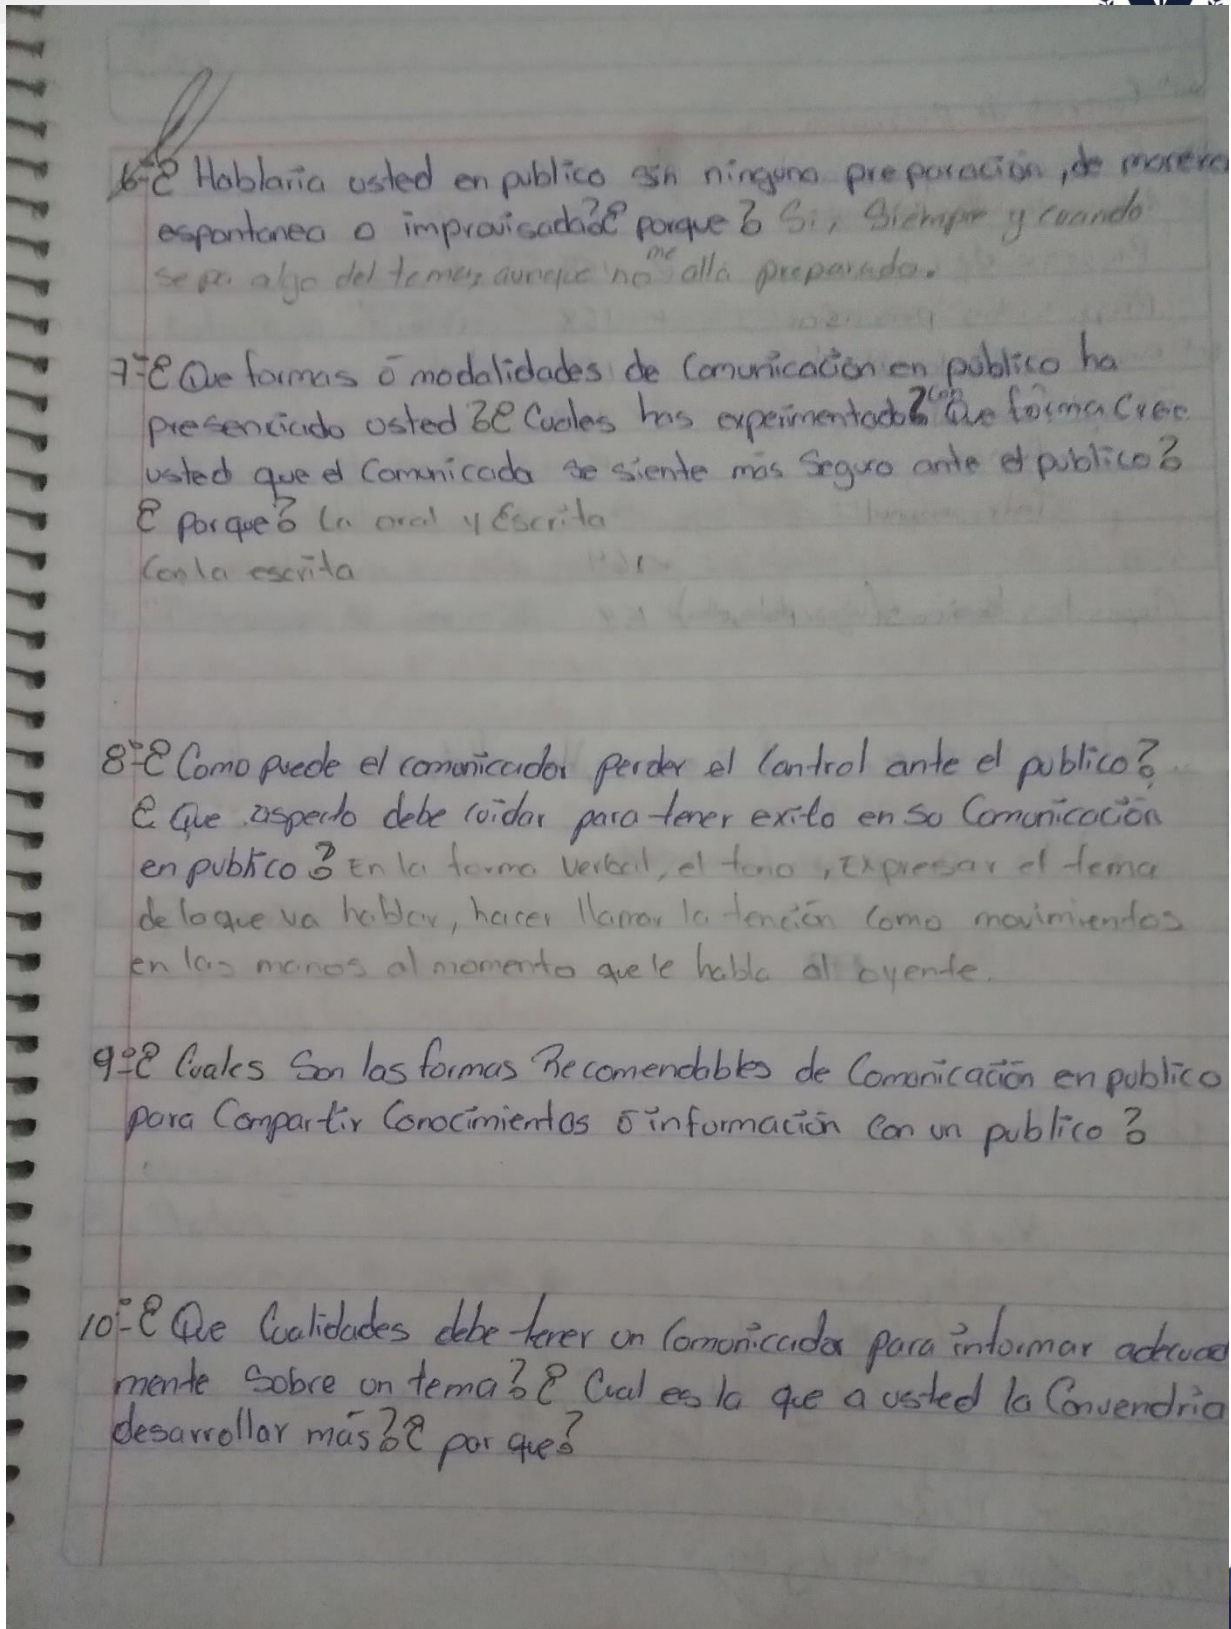 6-¿ Hablaria usted en publico sin ninguna preparación, de manera
espontanea o improvisada? ¿ porque? Si, Siempre y cuando
sepa algo del tema, aunque no me alla preparado.
7-¿ Que formas ó modalidades de Comunicación en público ha
presenciado usted? ¿ Cuales has experimentado? Con Que forma Cree
usted que el Comunicador se siente más Seguro ante el publico?
¿ Porque? La oral y Escrita
Con la escrita
8-¿ Como puede el comunicador perder el Control ante el publico?
¿ Que aspecto debe cuidar para tener exito en su Comunicación
en publico? En la forma verbal, el tono, Expresar el tema
de lo que va hablar, hacer llamar la tención como movimientos
en las manos al momento que le habla al oyente.
9-¿ Cuales Son las formas Recomendables de Comunicación en publico
para Compartir Conocimientos ó información con un publico?
10-¿ Que Cualidades debe tener un Comunicador para informar adecuad
mente Sobre un tema? ¿ Cual es la que a usted la Convendria
desarrollar más? ¿ por que?